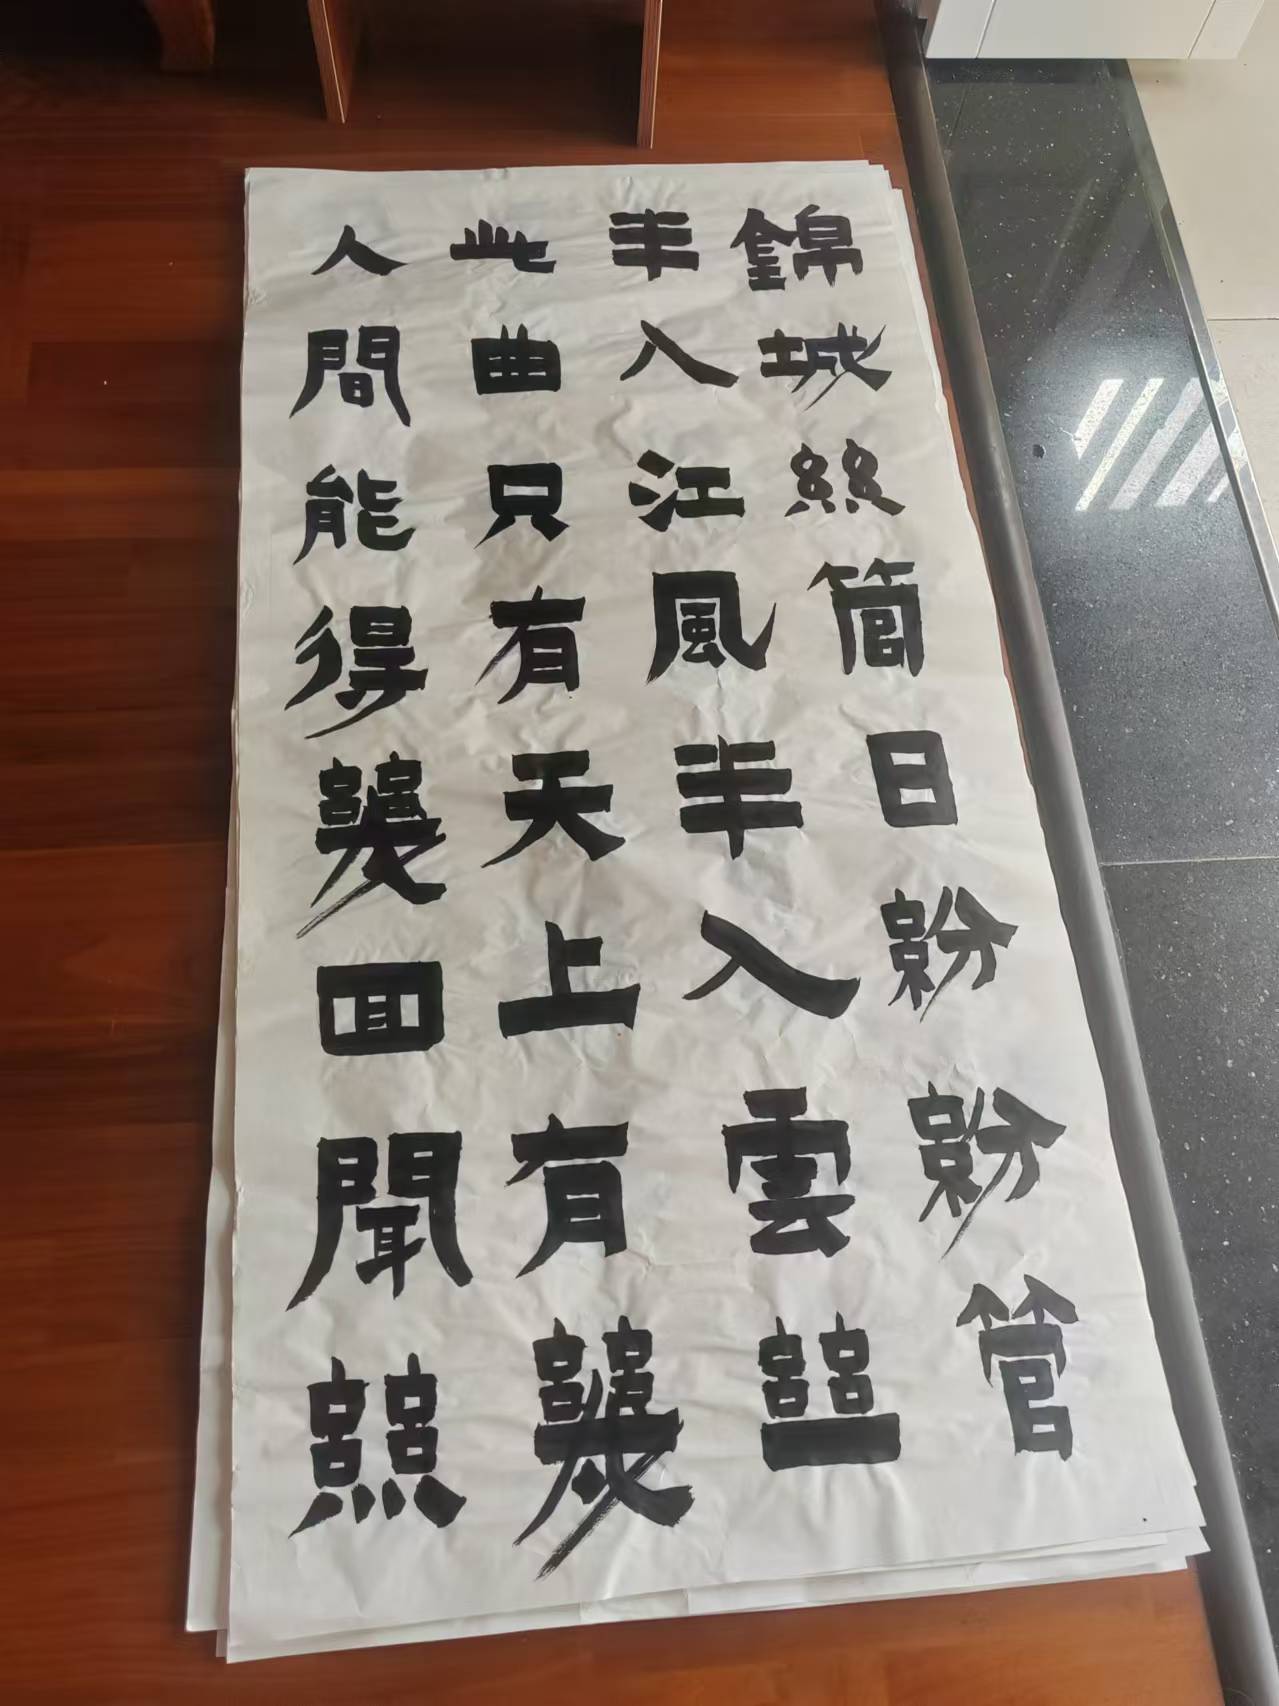 錦城絲管日紛紛管
半入江風半入雲丝
此曲只有天上有幾
人間能得幾回聞絲